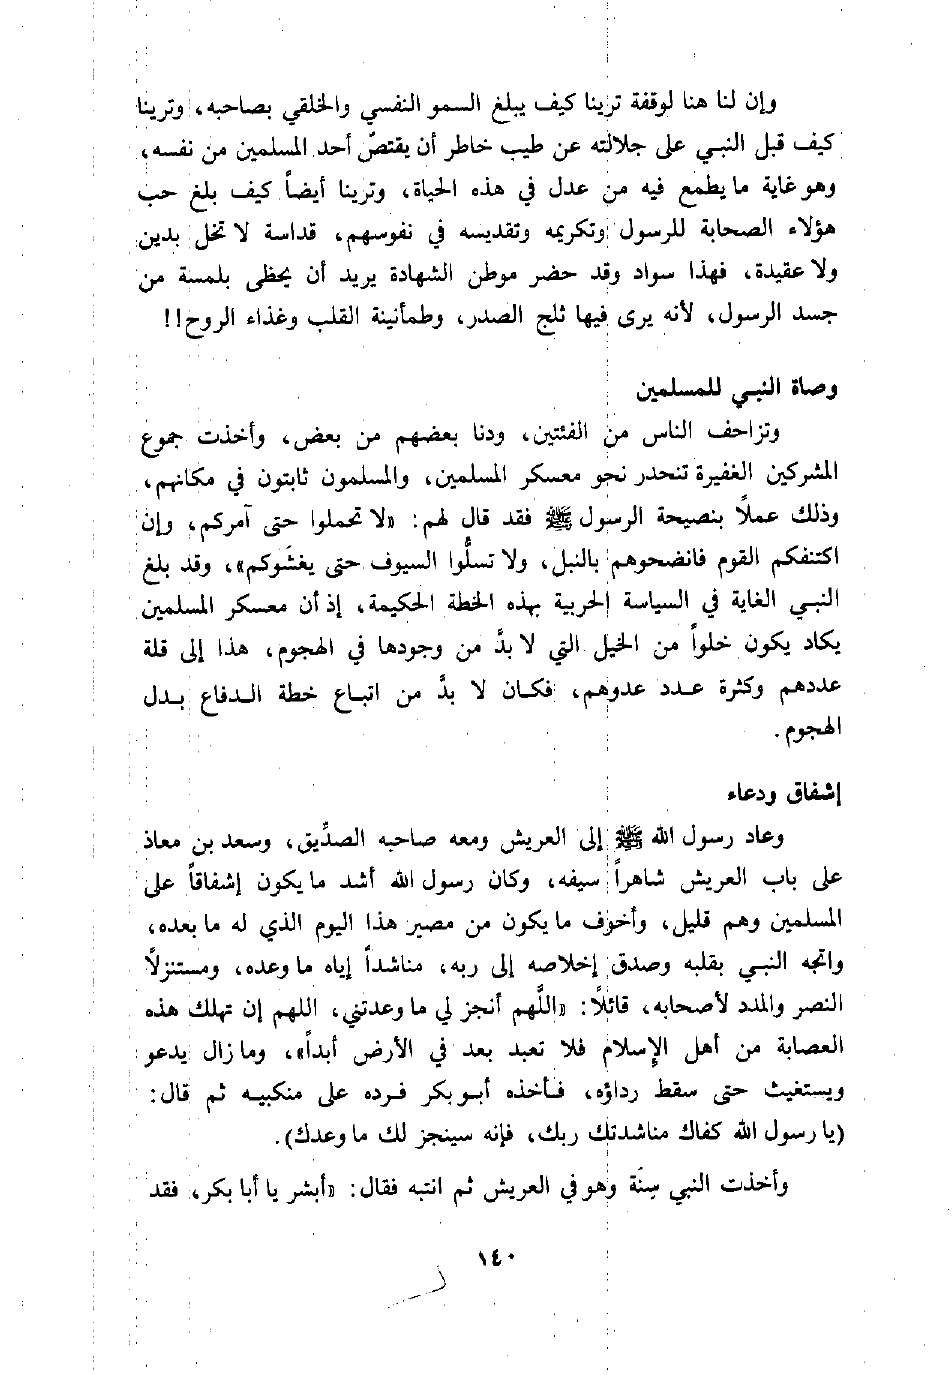 وإن لنا هنا لوقفة ترينا كيف يبلغ السمو النفسي والخلقي بصاحبه، وترينا
كيف قبل النبي على جلالته عن طيب خاطر أن يقتصّ أحد المسلمين من نفسه،
وهو غاية ما يطمع فيه من عدل في هذه الحياة، وترينا أيضاً كيف بلغ حب
هؤلاء الصحابة للرسول وتكريمه وتقديسه في نفوسهم، قداسة لا تخل بدين
ولا عقيدة، فهذا سواد وقد حضر موطن الشهادة يريد أن يحظى بلمسة من
جسد الرسول، لأنه يرى فيها ثلج الصدر، وطمأنينة القلب وغذاء الروح!!
وصاة النبي للمسلمين
وتزاحف الناس من الفئتين، ودنا بعضهم من بعض، وأخذت جموع
المشركين الغفيرة تنحدر نحو معسكر المسلمين، والمسلمون ثابتون في مكانهم،
وذلك عملاً بنصيحة الرسول ﷺ فقد قال لهم: «لا تحملوا حتى آمركم، وإن
اكتنفكم القوم فانضحوهم بالنبل، ولا تسلُّوا السيوف حتى يغشَوكم»، وقد بلغ
النبي الغاية في السياسة الحربية بهذه الخطة الحكيمة، إذ أن معسكر المسلمين
يكاد يكون خلواً من الخيل التي لا بدَّ من وجودها في الهجوم، هذا إلى قلة
عددهم وكثرة عدد عدوهم، فكان لا بدَّ من اتباع خطة الدفاع بدل
الهجوم.
إشفاق ودعاء
وعاد رسول الله ﷺ إلى العريش ومعه صاحبه الصدِّيق، وسعد بن معاذ
على باب العريش شاهراً سيفه، وكان رسول الله أشد ما يكون إشفاقاً على
المسلمين وهم قليل، وأخوف ما يكون من مصير هذا اليوم الذي له ما بعده،
واتجه النبي بقلبه وصدق إخلاصه إلى ربه، مناشداً إياه ما وعده، ومستنزلاً
النصر والمدد لأصحابه، قائلاً: «اللَّهم أنجز لي ما وعدتني، اللهم إن تهلك هذه
العصابة من أهل الإسلام فلا تعبد بعد في الأرض أبداً»، وما زال يدعو
ويستغيث حتى سقط رداؤه، فأخذه أبو بكر فرده على منكبيه ثم قال:
(يا رسول الله كفاك مناشدتك ربك، فإنه سينجز لك ما وعدك).
وأخذت النبي سِنَة وهو في العريش ثم انتبه فقال: «أبشر يا أبا بكر، فقد
١٤٠